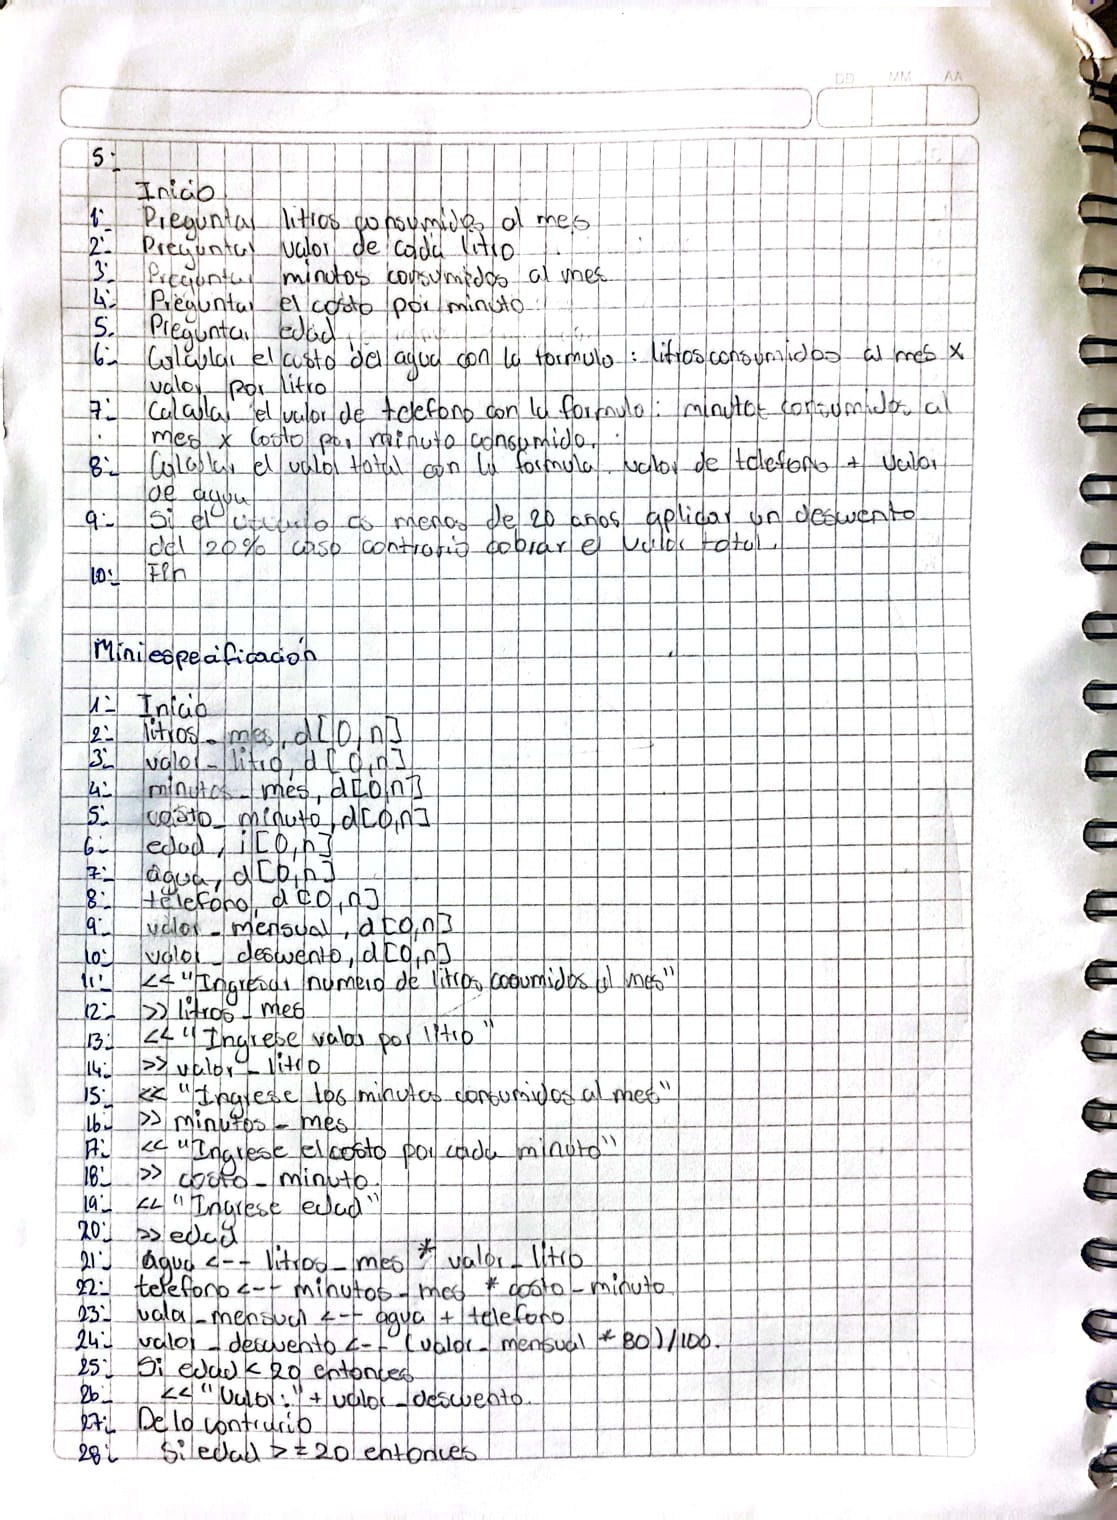 DD MM AA
5:
Inicio
1: Preguntar litros consumidos al mes
2: Preguntar valor de cada litro
3: Preguntar minutos consumidos al mes
4: Preguntar el costo por minuto
5. Preguntar edad
6: Calcular el costo del agua con la formula : litros consumidos al mes x
valor por litro
7: Calcular el valor de telefono con la formula: minutos consumidos al
mes x costo por minuto consumido.
8: Calcular el valor total con la formula. valor de telefono + valor
de agua
9: Si el usuario es menos de 20 años aplicar un descuento
del 20% caso contrario cobrar el valor total.
10: Fin
Miniespecificación
1: Inicio
2: litros_mes, d[0,n]
3: valor_litro, d[0,n]
4: minutos_mes, d[0,n]
5: costo_minuto, d[0,n]
6: edad, i[0,n]
7: agua, d[0,n]
8: telefono, d[0,n]
9: valor_mensual, d[0,n]
10: valor_descuento, d[0,n]
11: << "Ingresar numero de litros cosumidos al mes"
12: >> litros_mes
13: << "Ingrese valor por litro"
14: >> valor_litro
15: << "Ingrese los minutos consumidos al mes"
16: >> minutos_mes
17: << "Ingrese el costo por cada minuto"
18: >> costo_minuto.
19: << "Ingrese edad"
20: >> edad
21: agua <-- litros_mes * valor_litro
22: telefono <-- minutos_mes * costo_minuto
23: valor_mensual <-- agua + telefono
24: valor_descuento <-- (valor_mensual * 80)/100.
25: Si edad < 20 entonces
26: << "Valor:" + valor_descuento.
27: De lo contrario
28: Si edad >= 20 entonces